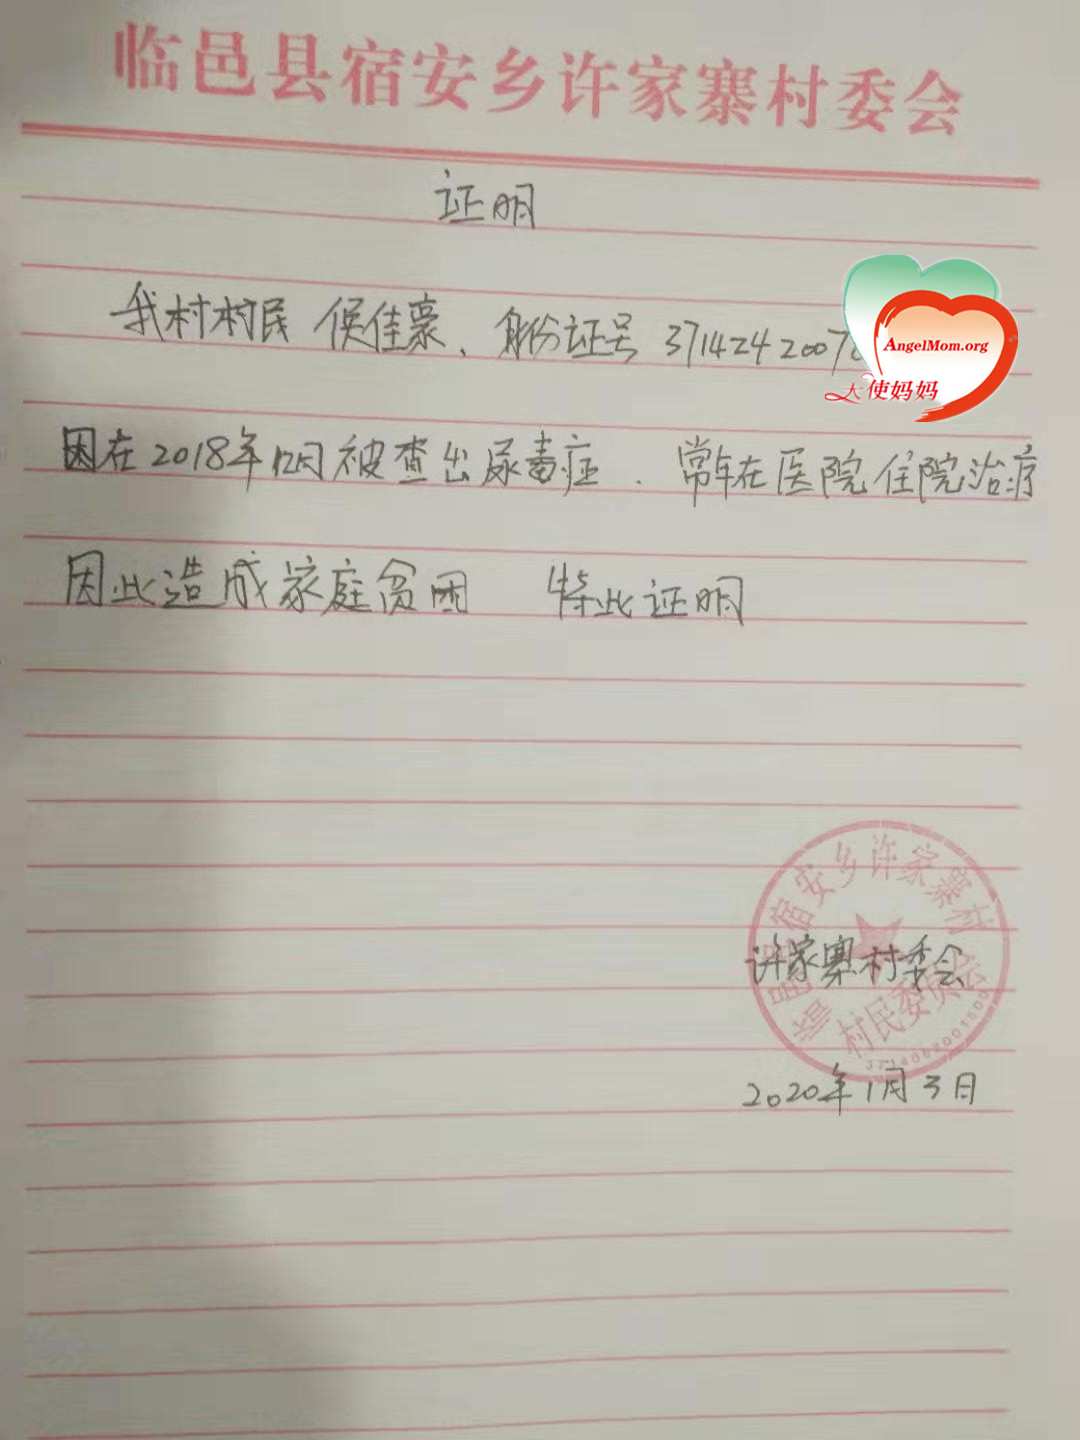 临邑县宿安乡许家寨村委会
证明
我村村民 侯佳豪、身份证号 371424200
AngelMom.org
天使妈妈
因在2018年12月被查出尿毒症.常年在医院住院治疗
因此造成家庭贫困 特此证明
临邑县宿安乡许家寨村
村民委员会
许家寨村委会
2020年1月3日